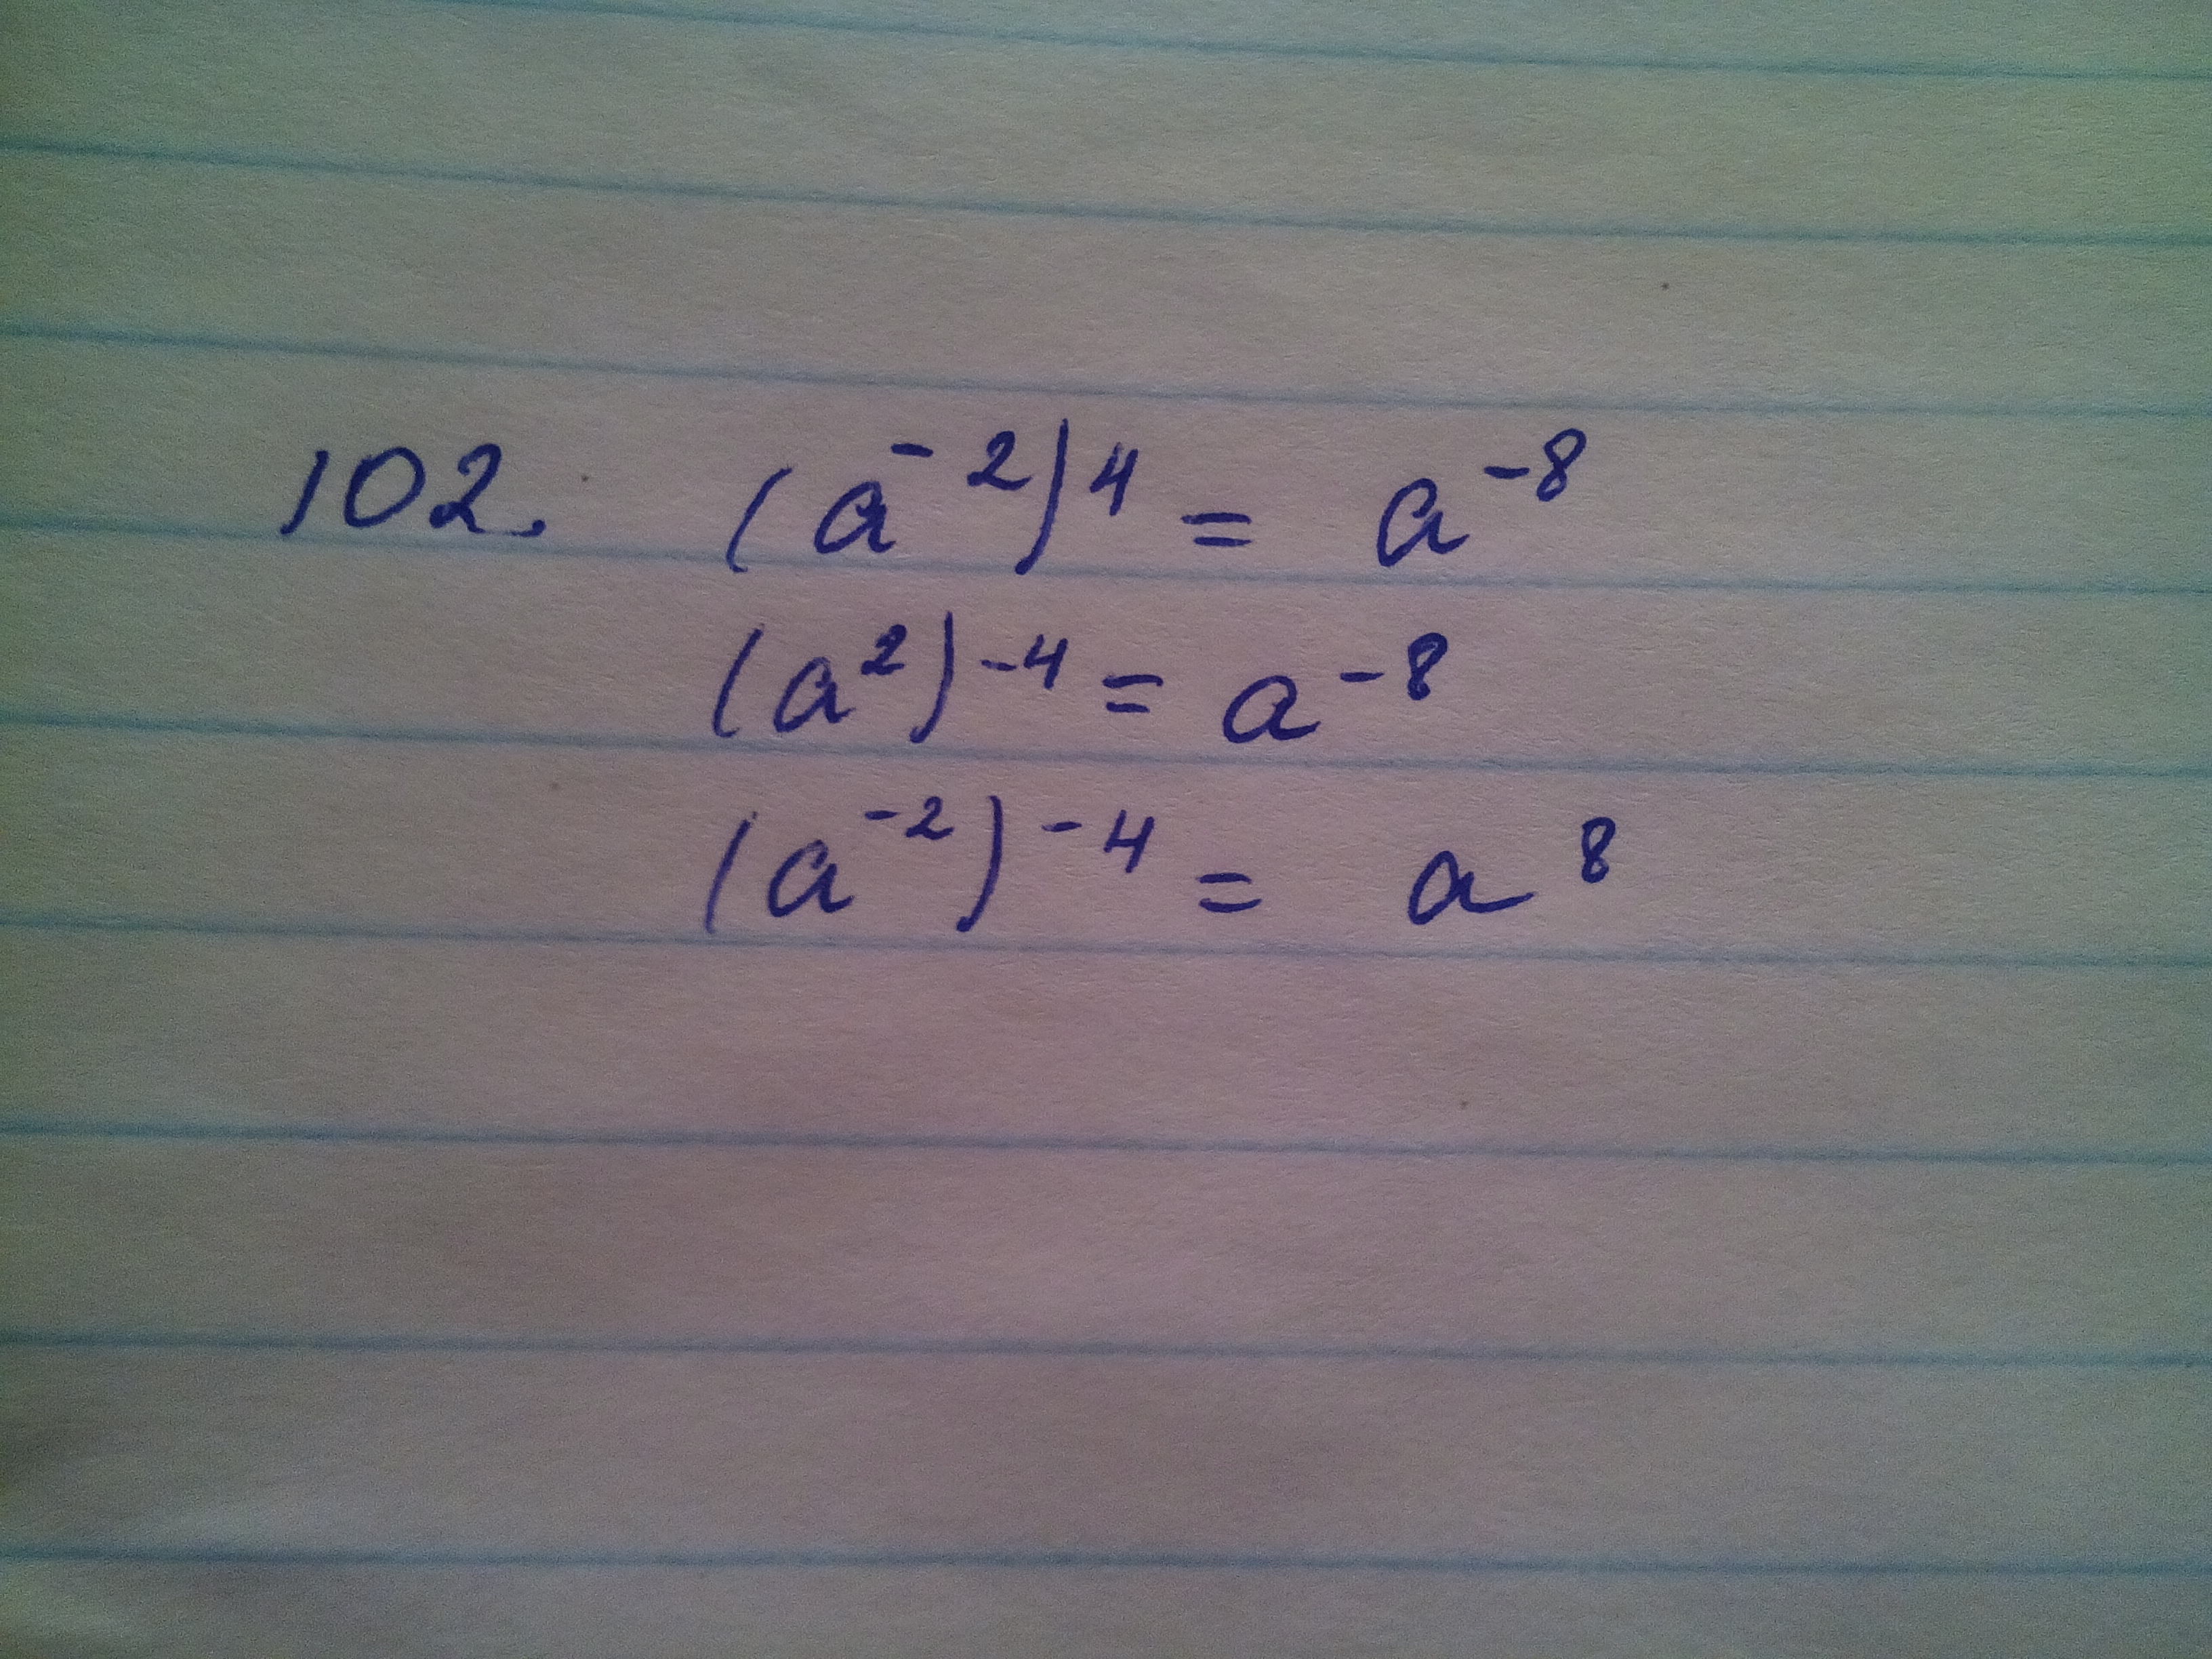 102. (a⁻²)⁴ = a⁻⁸
(a²)⁻⁴ = a⁻⁸
(a⁻²)⁻⁴ = a⁸